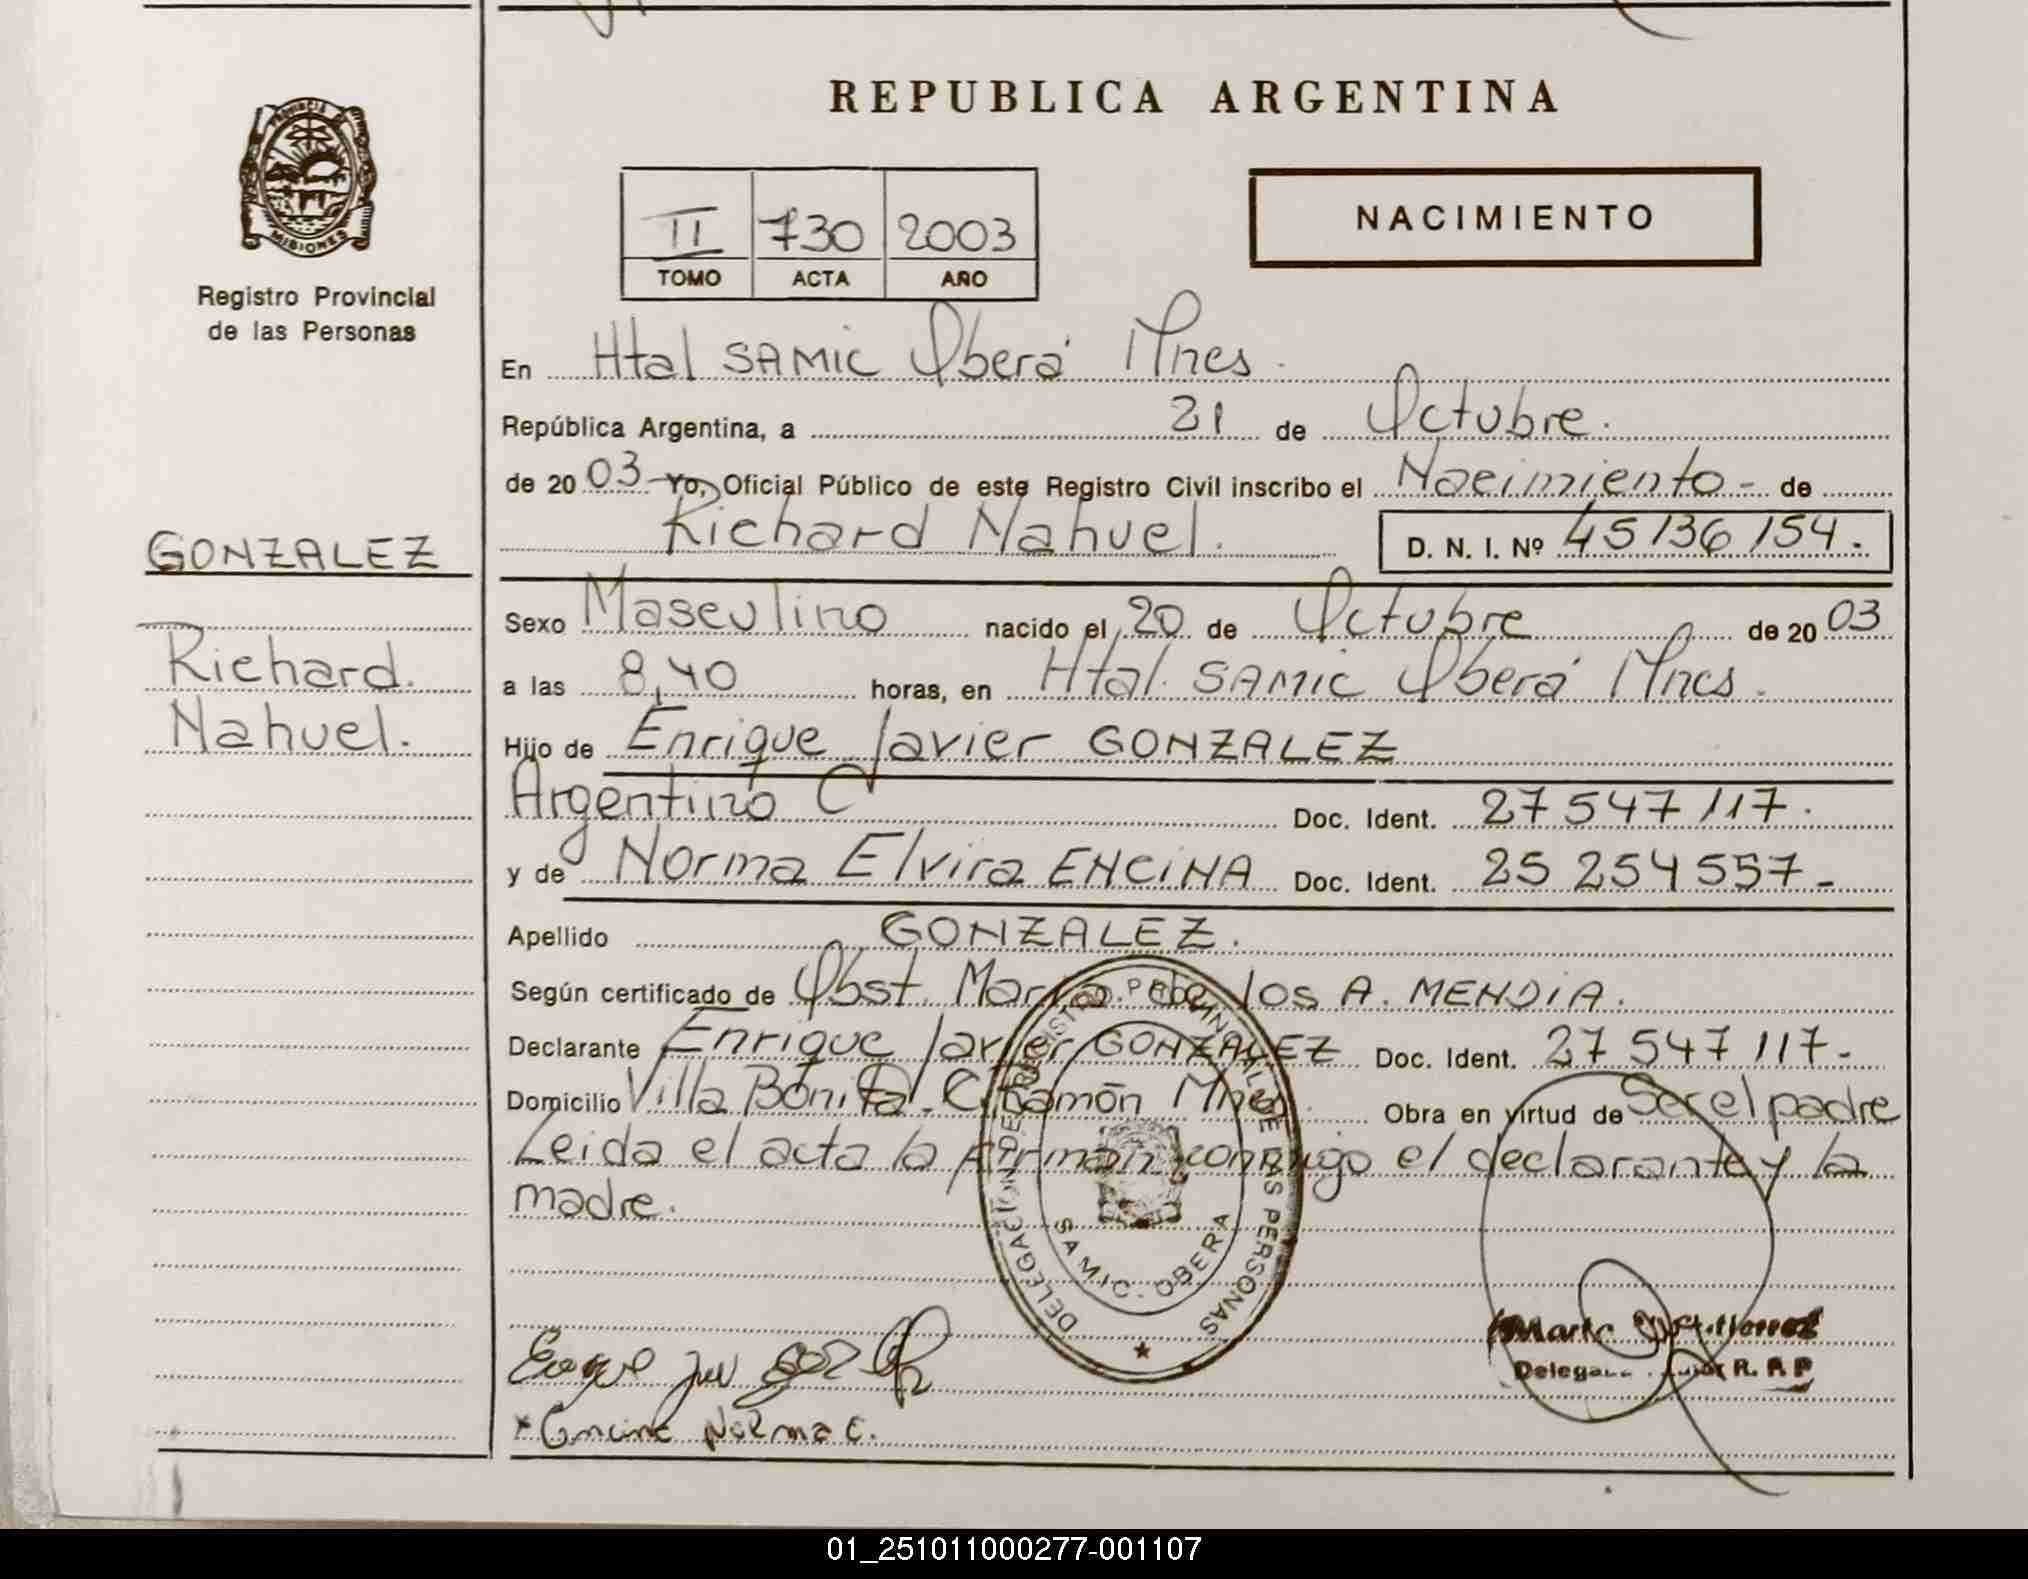 REPUBLICA ARGENTINA
PROVINCIA DE
MISIONES
Registro Provincial
de las Personas
II 730 2003
TOMO ACTA AÑO
NACIMIENTO
En Htal SAMIC Oberá Mnes.
República Argentina, a 21 de Octubre.
de 20 03 Yo, Oficial Público de este Registro Civil inscribo el Nacimiento - de
Richard Nahuel. D. N. I. Nº 45 136 154.
GONZALEZ
Richard.
Nahuel.
Sexo Masculino nacido el 20 de Octubre de 20 03
a las 8,40 horas, en Htal. SAMIC Oberá Mnes.
Hijo de Enrique Javier GONZALEZ
Argentino Doc. Ident. 27 547 117.
y de Norma Elvira ENCINA Doc. Ident. 25 254 557-
Apellido GONZALEZ.
Según certificado de Obst. María de los A. MENDIA.
Declarante Enrique Javier GONZALEZ Doc. Ident. 27 547 117-
Domicilio Villa Bonita - C. Ramón Mnes. Obra en virtud de Ser el padre
Leida el acta la firman conmigo el declarante y la
madre.
DELEGACION DE REGISTRO PROVINCIAL DE LAS PERSONAS
SAMIC - OBERA
R. P. P
Norma
01_251011000277-001107